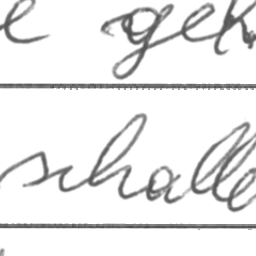 e gek
schalle